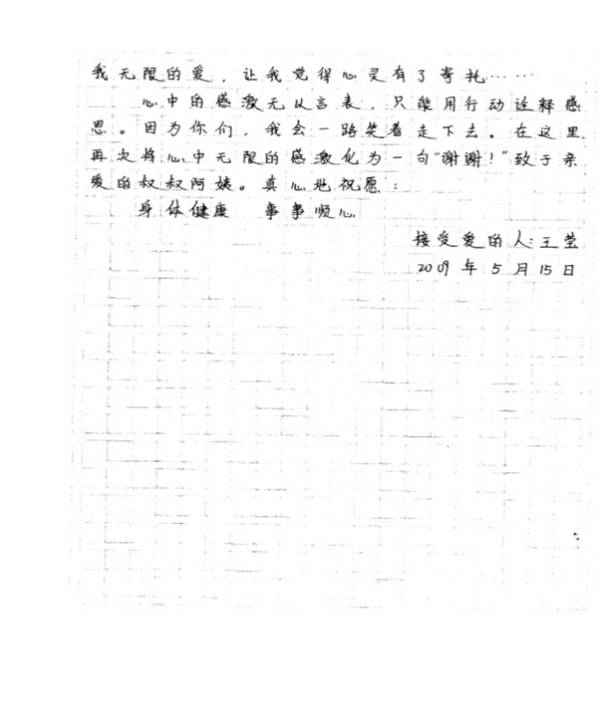 我无限的爱，让我觉得心灵有了寄托……
心中的感激无以言表，只能用行动诠释感
恩。因为你们，我会一路笑着走下去。在这里
再次将心中无限的感激化为一句“谢谢！”致于亲
爱的叔叔阿姨。真心地祝愿：
身体健康 事事顺心
接受爱的人：王莹
2009年5月15日